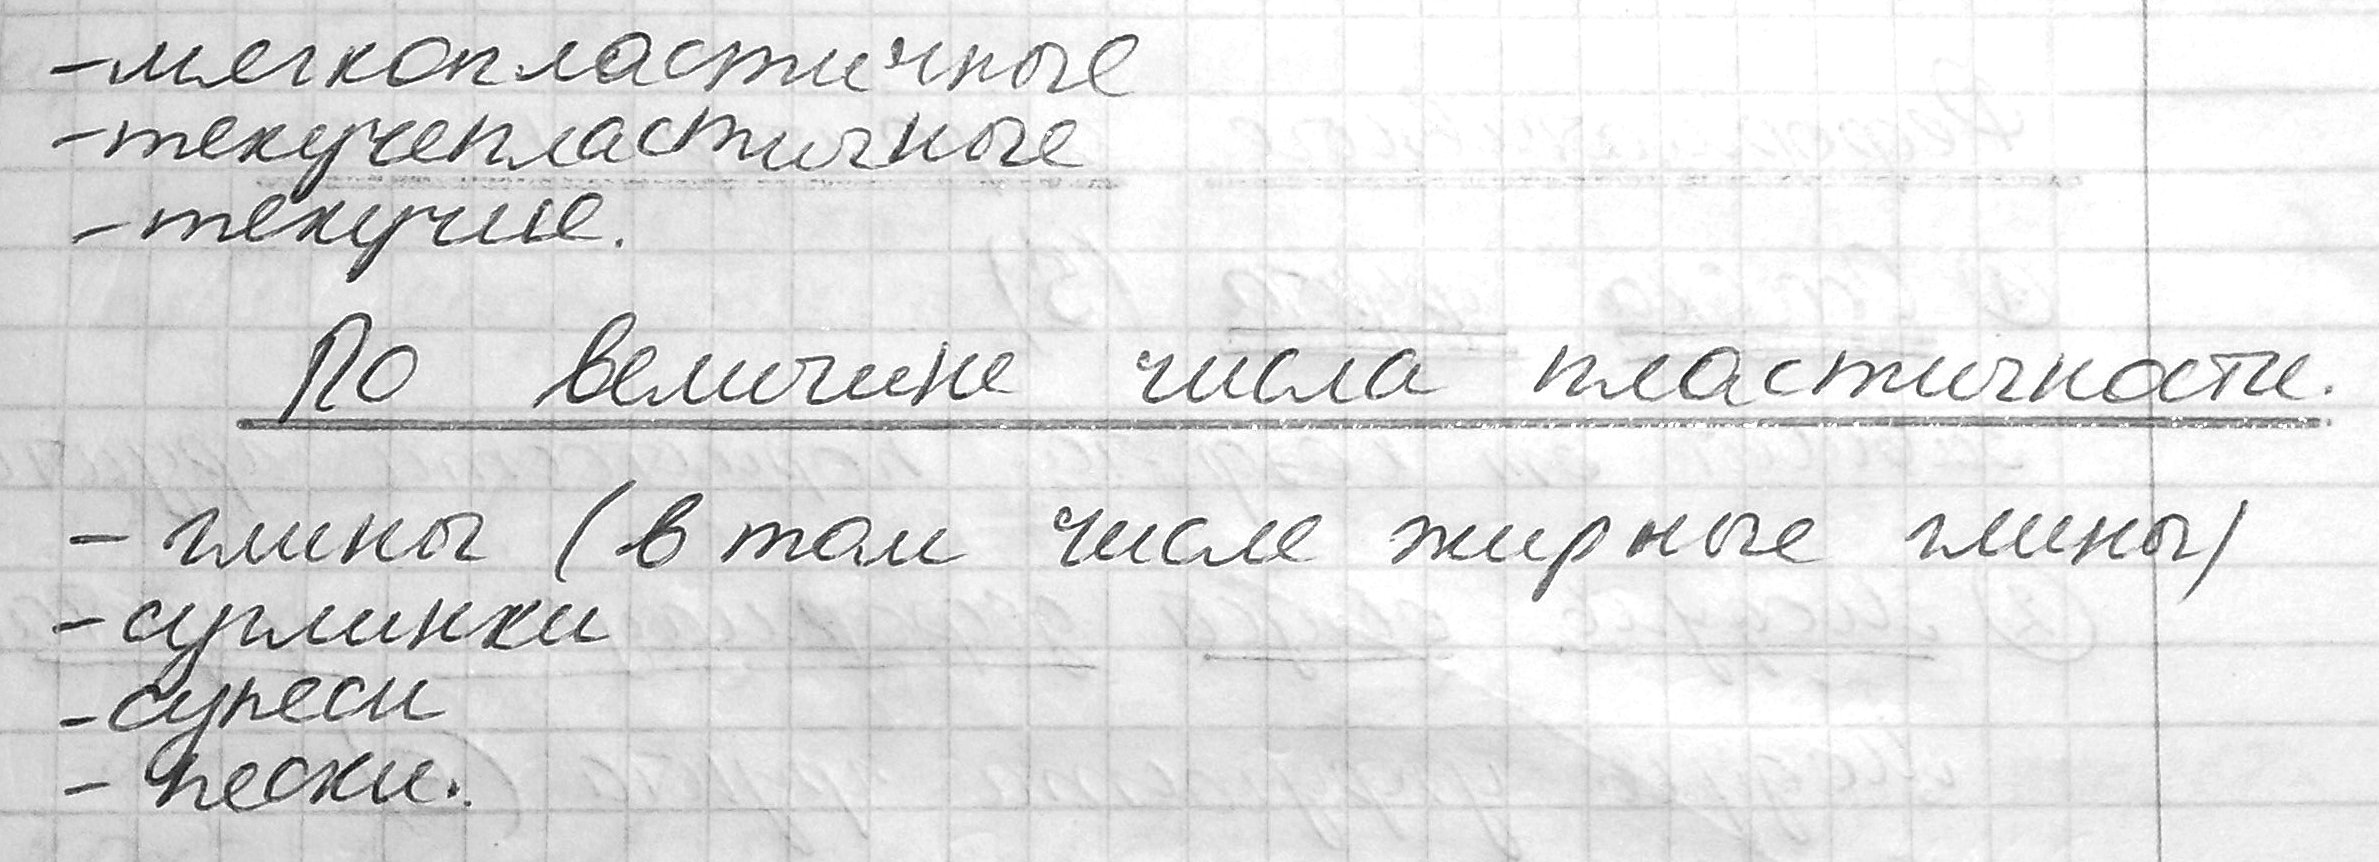 - мягкопластичные
- текучепластичные
- текучие.
По величине числа пластичности.
- глины (в том числе жирные глины)
- суглинки
- супеси
- пески.